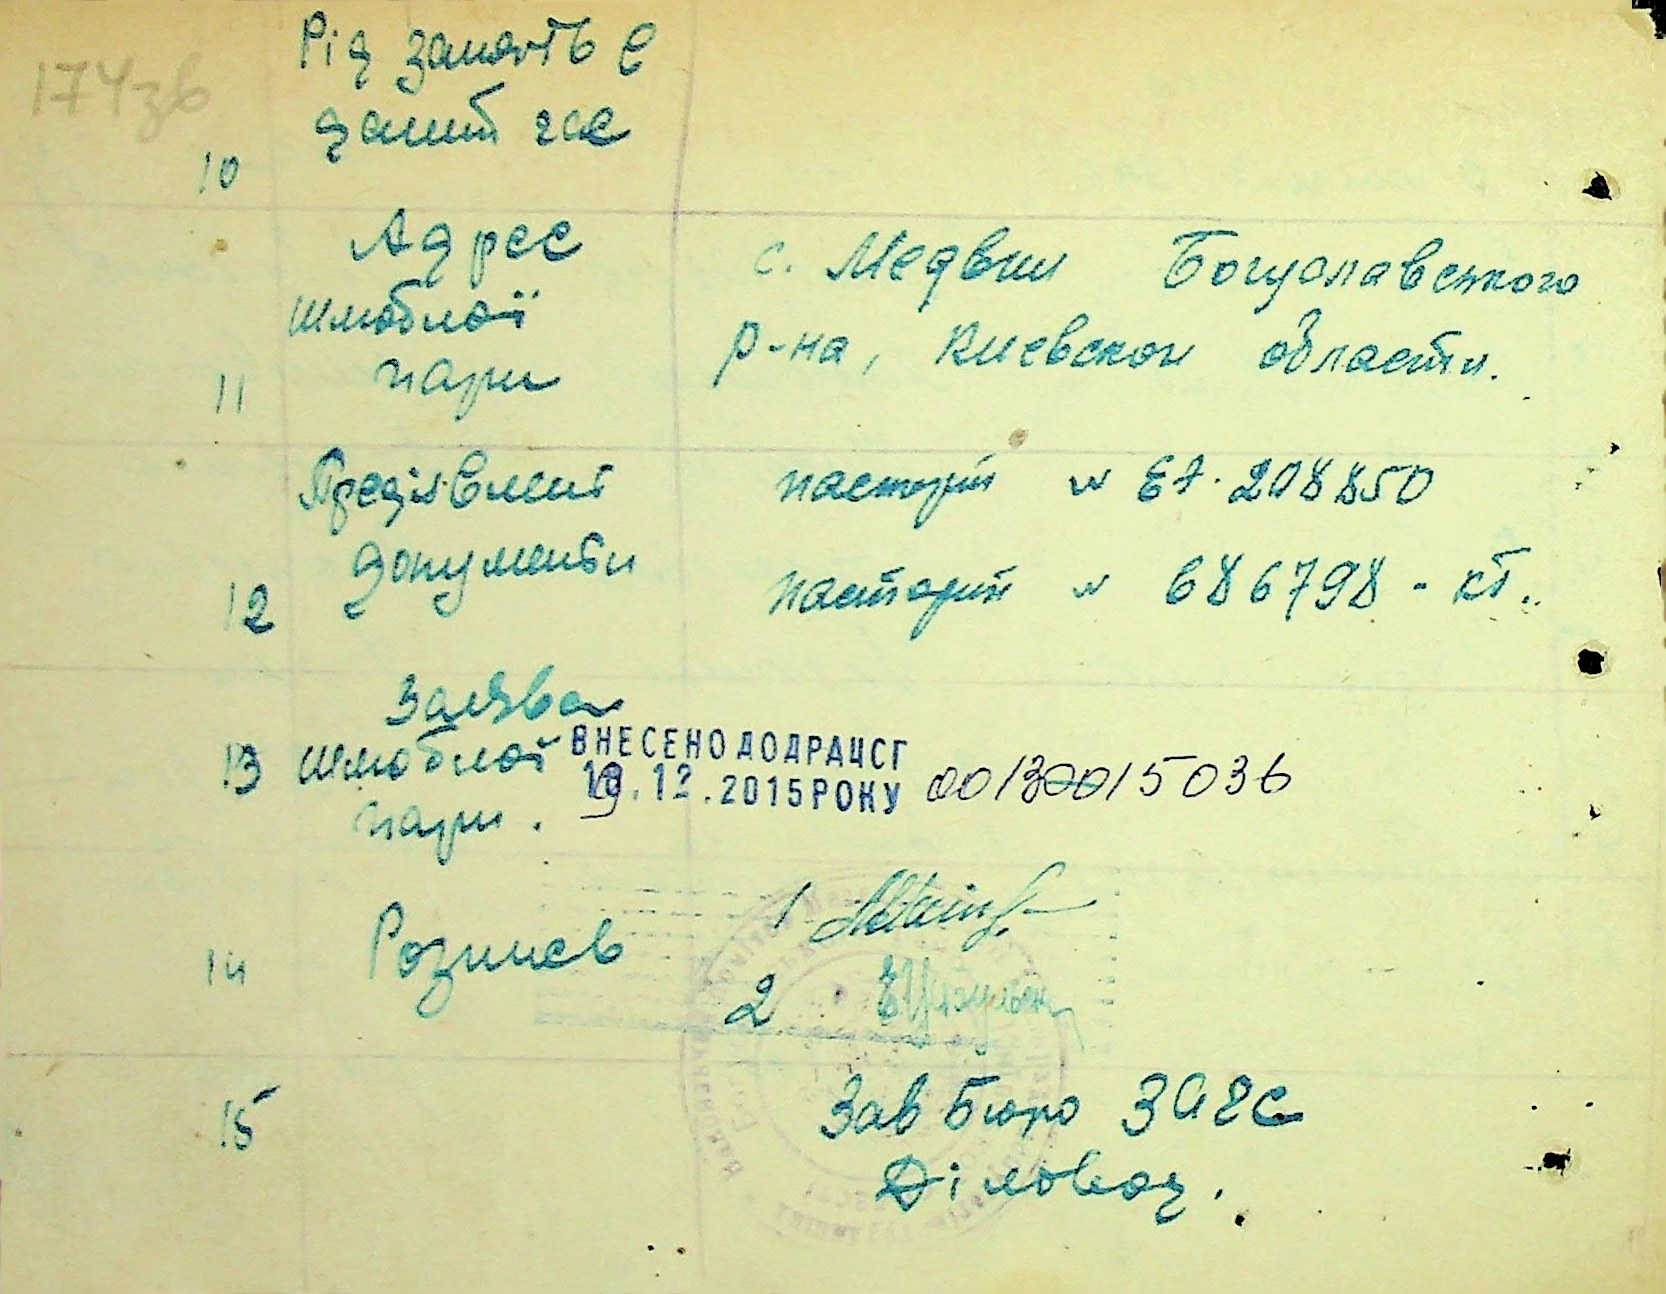 174зв
Рід занять в
даний час
10
Адрес
шлюбної
пари
11
с. Медвин Богуславського
р-на, Киевской области.
Предіявлені
документи
12
паспорт № ЕА. 208850
паспорт № 686798 - кт.
Заява
13 шлюбной
пари.
ВНЕСЕНО ДО ДРАЦСГ
19.12.2015 РОКУ 00130015036
14
Розписв
1
2
15
Зав Бюро ЗАГС
Діловод.